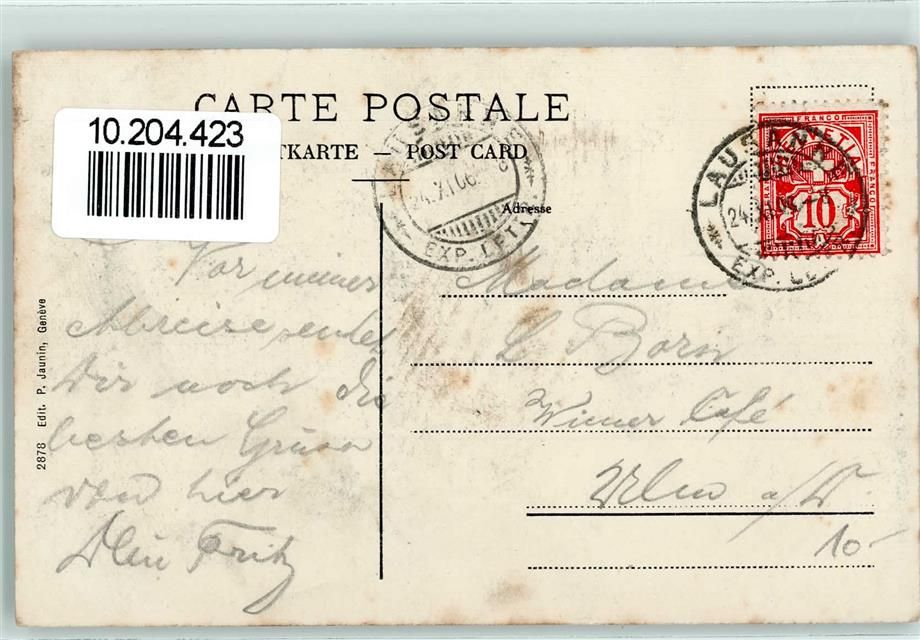 CARTE POSTALE
10.204.423
TKARTE — POST CARD
Adresse
24.XI.06.
EXP. LETT
LAUSANNE
24.XI.06
EXP. LE
FRANCO
FRANCO
10
2878 Edit. P. Jaunin, Genève
Vor meiner
Abreise sendet
Dir noch die
besten Grüsse
von hier
Dein Fritz
Madame
L Born
Wiener Café
Ulm a/D.
10-